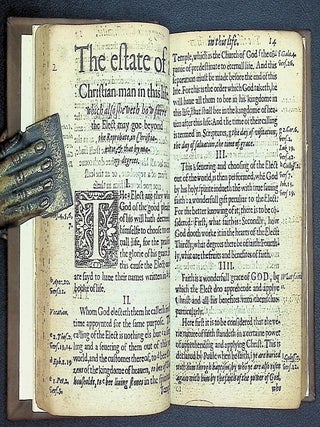 The estate of
Christian man in this life,
which also sheweth how farre
the Elect may goe beyond
the Reprobate in Christia-
nitie, & that by ma-
ny degrees.
The Elect are they
God of the good
of his will hath
himselfe to choose to
nall life, for the
the glorie of his
this cause the Elect
are sayd to have their names written in
booke of life.
II.
Vocation.
Whom God electeth them he calleth in
time appointed for the same purpose.
calling of the Elect is nothing els but
ling and a severing of them out of this
world, and the customes thereof, to
zens of the kingdome of heaven,
houshold, to bee living stones in the
Temple
in this life.
14
Temple, which is the Church of God
separation must be made before the end of this
life. For this is the order which God taketh, he
will have all them to bee in his kingdome in
this life, that shall bee in the kingdome of hea-
ven after this life: And the time of their calling
is termed in Scriptures, the day of visitation,
the day of salvation, the time of grace.
III.
This severing and choosing of the Elect
out of the world, is then performed, whē God
by his holy spirit indueth thē with true saving
faith: a wonderfull gift peculiar to the Elect.
For the better knowing of it, there is to be con-
sidered: First, what faith is: Secondly, how
God dooth worke it in the hearts of the Elect:
Thirdly, what degrees there be of faith: Fourth-
ly, what are the fruits and benefits of faith.
IIII.
Faith is a wonderfull grace of GOD, by
which the Elect doo apprehende and applye
Christ and all his benefites unto themselves
particularly.
Here first it is to be considered that the ve-
rie nature of faith standeth in a certaine power
of apprehending and applying Christ. This is
declared by Paule when he saith, ye are buried
with him through baptisme, by whō ye are also risen
again with him by the faith of the power of God,
who